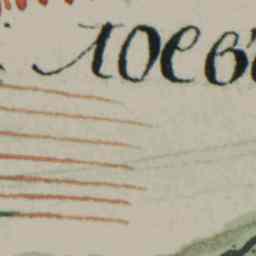 лоев